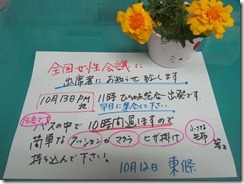 全国女性会議に
出席者にお知らせ致します
10月13日PM
11時 ひめゆり会館 出発です。
早目に集合して下さい
注意事項
バスの中で10時間過ごすので
簡単なクッションかマクラ ヒザ掛け 小さな毛布 等
持ち込んで下さい。
10月12日 東條